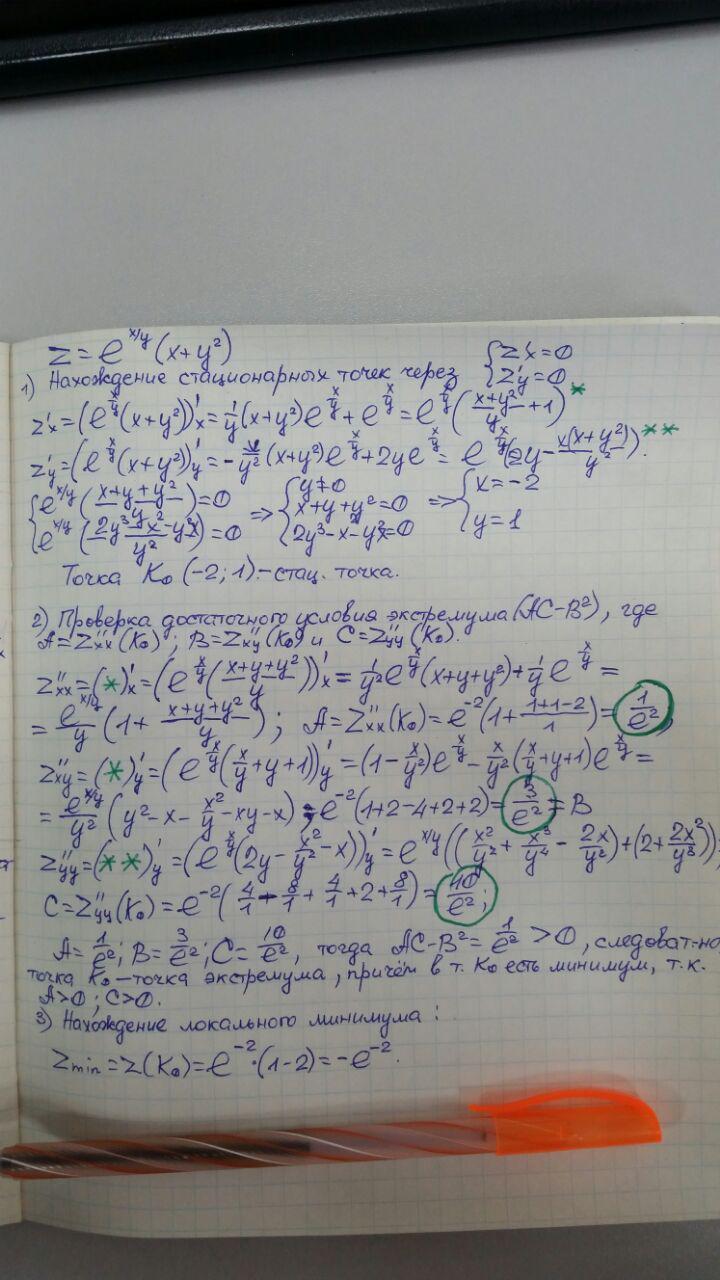 z = e^{x/y} (x+y²)
1) Нахождение стационарных точек через { z'x = 0
z'y = 0
z'x = (e^{x/y}(x+y²))'x = 1/y (x+y²) e^{x/y} + e^{x/y} = e^{x/y} ((x+y²)/y + 1) *
z'y = (e^{x/y}(x+y²))'y = -x/y² (x+y²) e^{x/y} + 2y e^{x/y} = e^{x/y} (2y - x(x+y²)/y²) **.
{ e^{x/y} ((x+y+y²)/y) = 0 => { y≠0 => { x = -2
e^{x/y} ((2y³-x²-y²x)/y²) = 0 x+y+y² = 0 y = 1
2y³-x²-y²x = 0
Точка K₀ (-2; 1) - стац. точка.
2) Проверка достаточного условия экстремума (AC-B²), где
A = z''xx (K₀) ; B = z''xy (K₀) и C = z''yy (K₀).
z''xx = (*)'x = (e^{x/y} ((x+y+y²)/y))'x = 1/y² e^{x/y} (x+y+y²) + 1/y e^{x/y} =
= e^{x/y}/y (1 + (x+y+y²)/y) ; A = z''xx (K₀) = e^{-2} (1 + (1+1-2)/1) = 1/e²,
z''xy = (*)'y = (e^{x/y} (x/y + y + 1))'y = (1 - x/y²) e^{x/y} - x/y² (x/y + y + 1) e^{x/y} =
= e^{x/y}/y² (y² - x - x²/y - xy - x) ; e^{-2} (1+2-4+2+2) = 3/e² = B
z''yy = (**)'y = (e^{x/y} (2y - x²/y² - x))'y = e^{x/y} ((x²/y² + x³/y⁴ - 2x/y²) + (2 + 2x²/y³));
C = z''yy (K₀) = e^{-2} (4/1 - 8/1 + 4/1 + 2 + 8/1) = 10/e²;
A = 1/e²; B = 3/e²; C = 10/e², тогда AC-B² = 1/e² > 0, следоват-но,
точка K₀ - точка экстремума, причём в т. K₀ есть минимум, т.к.
A>0; C>0.
3) Нахождение локального минимума:
z min = z(K₀) = e^{-2}·(1-2) = -e^{-2}.